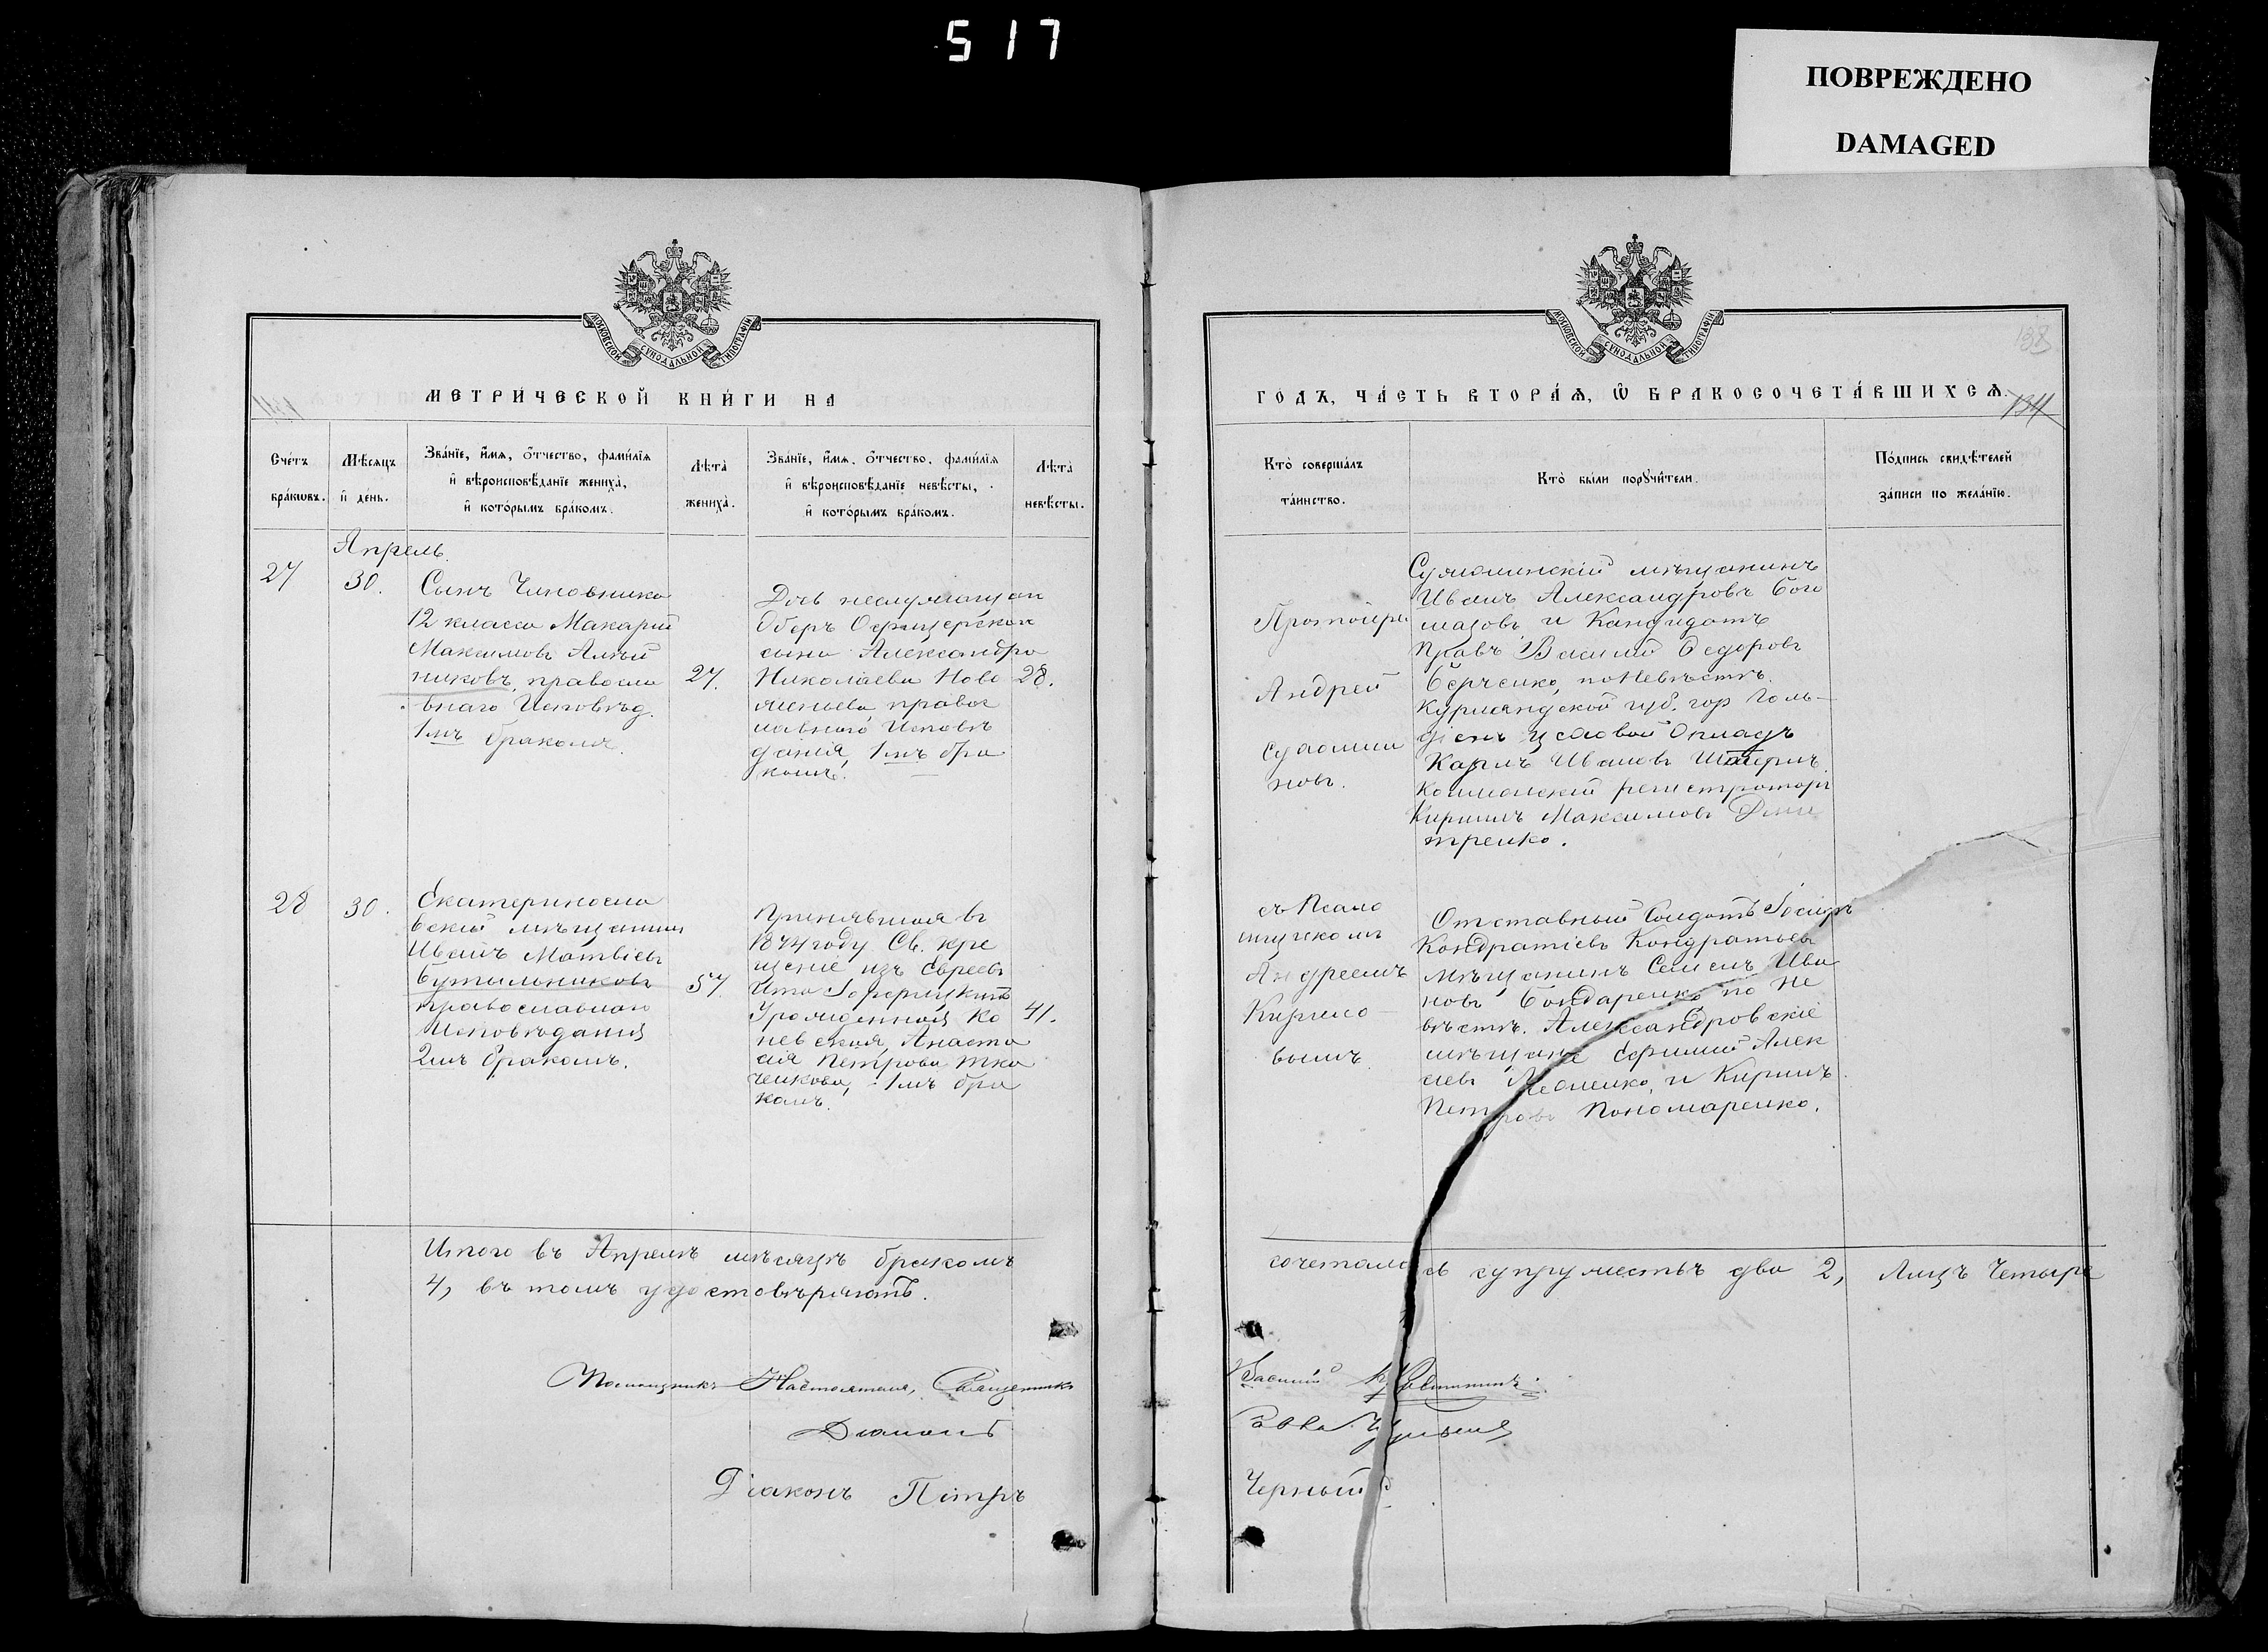 517
ПОВРЕЖДЕНО
DAMAGED
МОСКОВСКОЙ СѴНОДАЛЬНОЙ ТИПОГРАФІИ
МЕТРИ́ЧЕСКОЙ КНИ́ГИ НА
Сче́тъ бра́ковъ.
Мѣ́сяцъ и҆ де́нь.
Зва́нїе, и҆́мя, ѻ҆́тчество, фами́лїя
и҆ вѣроисповѣ́данїе жениха̀,
и҆ кото́рымъ бра́комъ.
Лѣта̀ жениха̀.
Зва́нїе, и҆́мя, ѻ҆́тчество, фами́лїя
и҆ вѣроисповѣ́данїе невѣ́сты,
и҆ кото́рымъ бра́комъ.
Лѣта̀ невѣ́сты.
Апрель
27
30.
Сынъ Чиновника
12 класса Макарій
Максимовъ
никовъ, правосла
внаго Исповѣд.
1мъ бракомъ.
27.
Дочь
Оберъ Офицерскаго
сына Александра
Николаева Ново
правос
лавнаго Исповѣ
данія, 1мъ бра
комъ.
28.
28
30.
Екатериносла
вскій мѣщанинъ
Иванъ Матвіевъ
Бутыльниковъ
православнаго
Исповѣданія
2мъ бракомъ.
57
Принявшая въ
1874 году Св. кре
щеніе изъ Евреевъ
нев ская, Анаста
сія Петрова Тка
ченкова, 1мъ бра
комъ.
41.
Итого въ Апрелѣ мѣсяцѣ бракомъ
4, въ томъ удостовѣряютъ.
Помощникъ Настоятеля, Священникъ
Діаконъ Петръ
МОСКОВСКОЙ СѴНОДАЛЬНОЙ ТИПОГРАФІИ
138
134
ГО́ДЪ, ЧА́СТЬ ВТОРА́Я, Ѡ҆ БРАКОСОЧЕТА́ВШИХСЯ.
Кто̀ соверша́лъ
та́инство.
Кто̀ бы́ли порꙋчи́тели.
По́дпись свидѣ́телей
за́писи по жела́нїю.
Протоіре
Андрей
новъ.
мѣщанинъ
Иванъ Александровъ Бого
мазовъ и Кандидатъ
Правъ Василій Ѳедоровъ
Берченко, по Невѣстѣ.
Курляндской губ. гор Голь-
Карлъ Ивановъ
регистраторъ
Кириллъ Максимовъ Дми
тренко.
съ Псало
мщикомъ
Андреемъ
Кирило
вымъ.
Отставный Солдатъ Іосифъ
Кондратіевъ Кондратьевъ
мѣщанинъ Семенъ Ива
новъ Бондаренко по Не
вѣстѣ. Александровскіе
мѣщане Ефимій Алек
и Кириллъ
Петровъ Пономаренко.
сочеталось супружествъ два 2, Лицъ Четыре
Василій
Черный